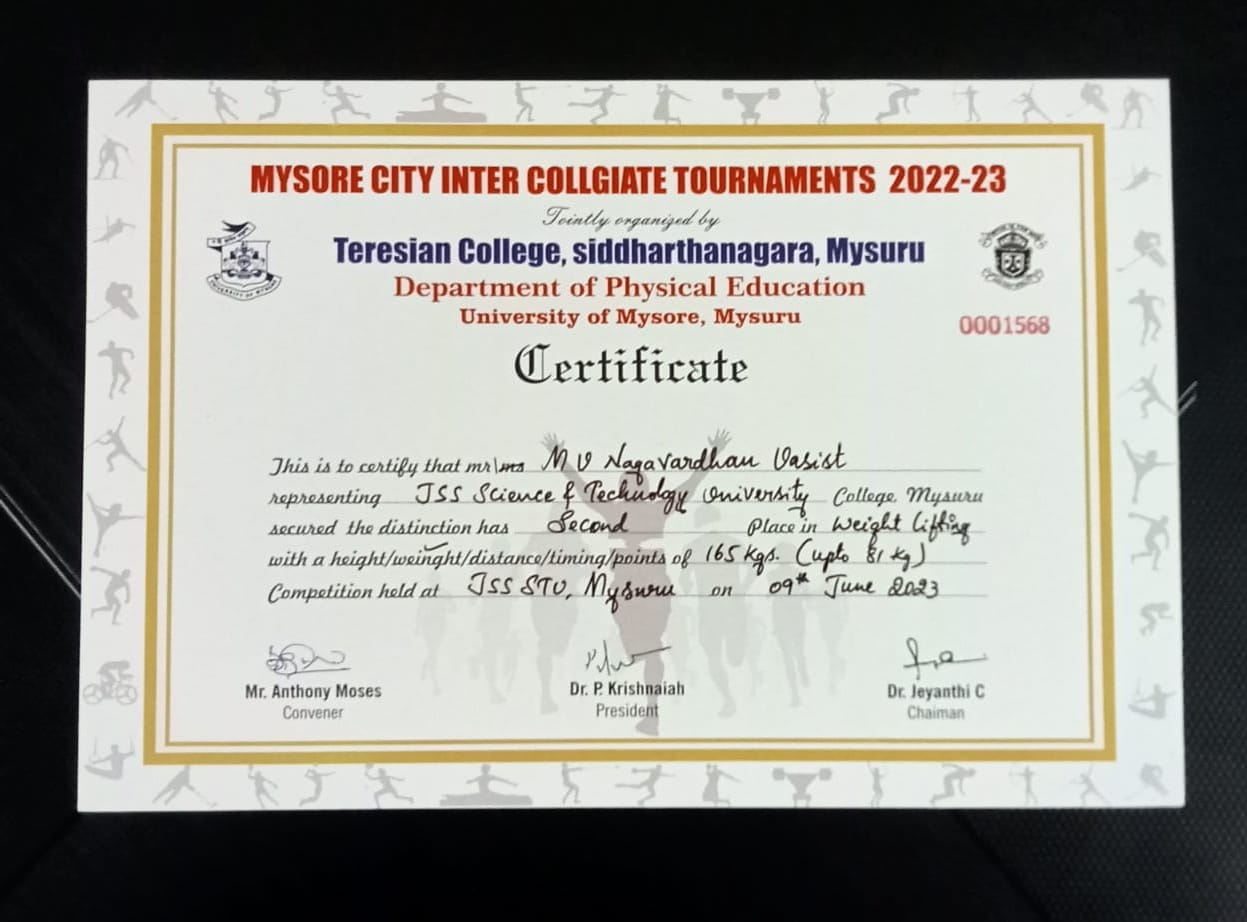 MYSORE CITY INTER COLLGIATE TOURNAMENTS 2022-23
Jointly organized by
Teresian College, siddharthanagara, Mysuru
Department of Physical Education
University of Mysore, Mysuru
0001568
Certificate
This is to certify that mr\ms M V Nagavardhan Vasist
representing JSS Science & Technology University College, Mysuru
secured the distinction has Second Place in Weight lifting
with a height/weinght/distance/timing/points of 165 kgs. (upto 81 kg)
Competition held at JSS STU, Mysuru on 09th June 2023
Mr. Anthony Moses
Convener
Dr. P. Krishnaiah
President
Dr. Jeyanthi C
Chaiman